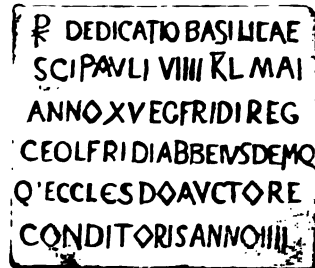 ⳨ DEDICATIO BASILICAE
SCI PAVLI VIIII KL MAI
ANNO XV ECFRIDI REG
CEOLFRIDI ABB EIVSDEM Q
Q' ECCLES DO AVCTORE
CONDITORIS ANNO IIII